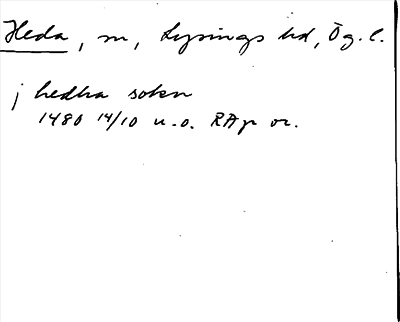 Heda, sn, Lysings hd, Ög. l.
j hedha sokn
1480 14/10 u.o. RAp or.